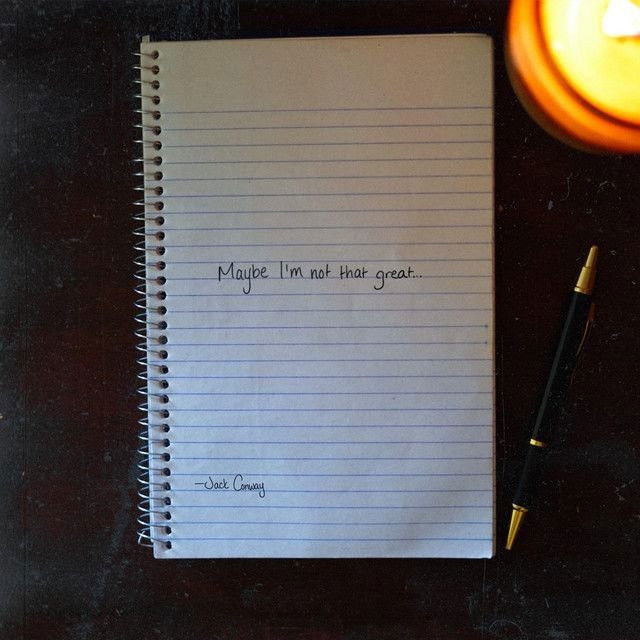 Maybe I'm not that great...
—Jack Conway